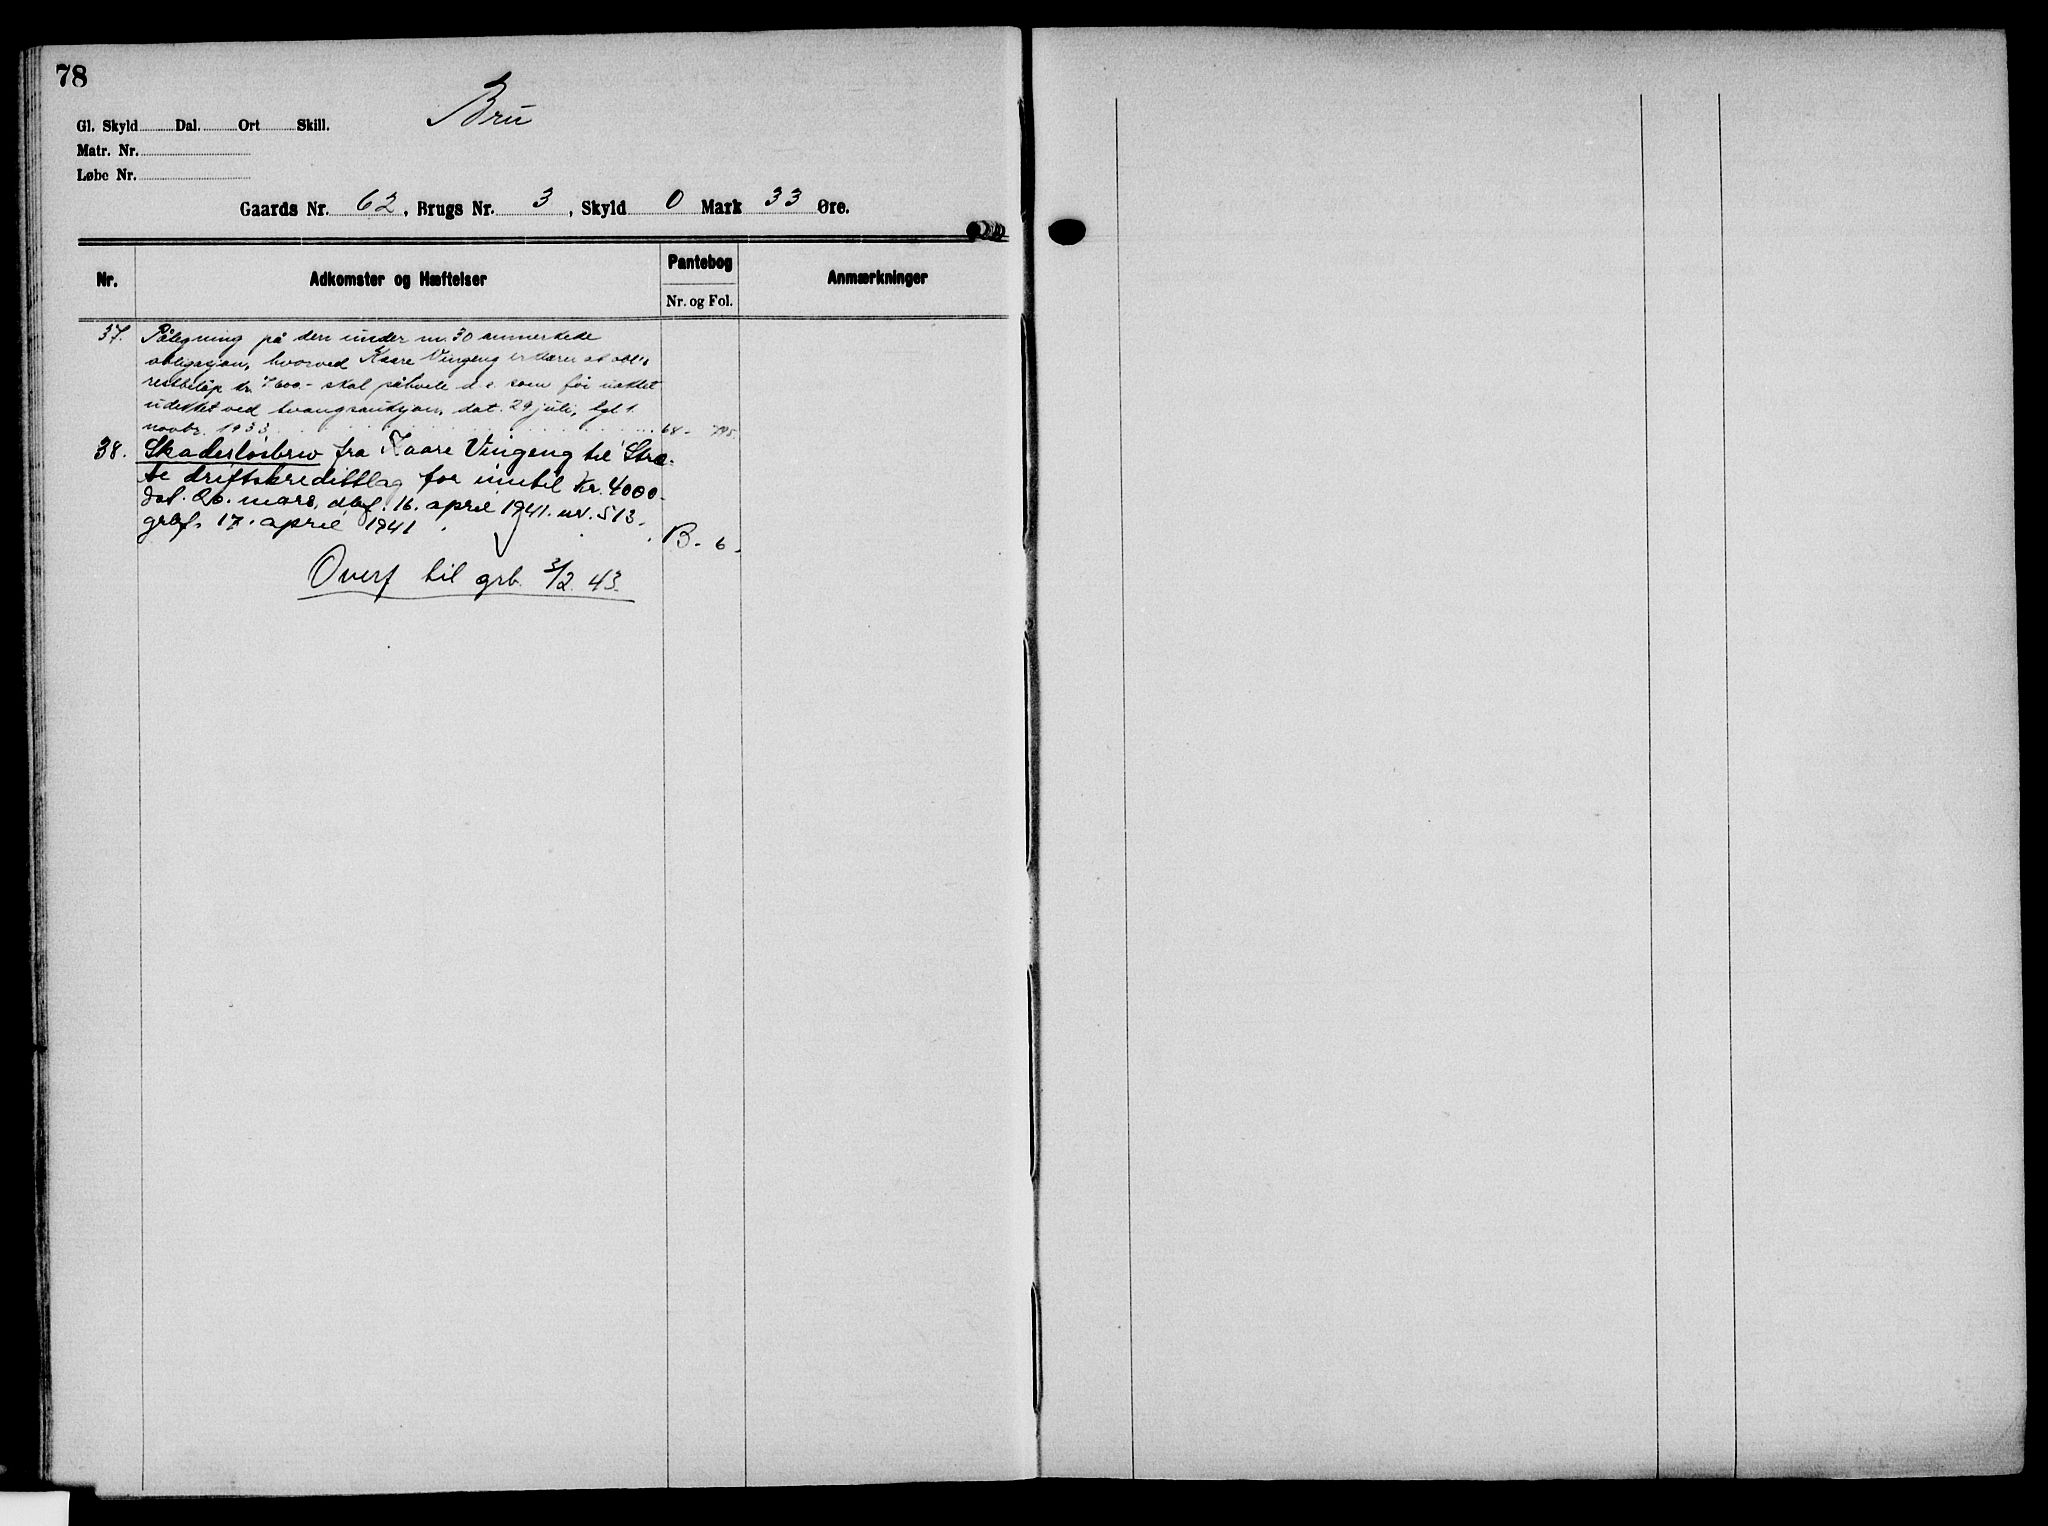 78
Bru
Gl. Skyld Dal. Ort Skill.
Matr. Nr.
Løbe Nr.
Gaards Nr. 62, Brugs Nr. 3, Skyld 0 Mark 33 Øre.
Nr. Adkomster og Hæftelser Pantebog Anmærkninger
Nr. og Fol.
37. Påtegning på den under nr. 30 anmerkede
obligasjon, hvorved Kaare Vingeng erklærer at obl's
restbeløp kr. 7600.- skal påhvile d. e. som før uaktet
udekket ved tvangsauksjon, dat. 29 juli, tgl 1.
novbr. 1933 68-
38. Skadesløsbrev fra Kaare Vingeng til Stra-
te driftskredittlag for inntil Kr. 4000-
dat. 20. mars, dbf. 16. april 1941. nr. 513.
grbf. 17. april 1941. B- 6-
Overf til grb. 3/2. 43.